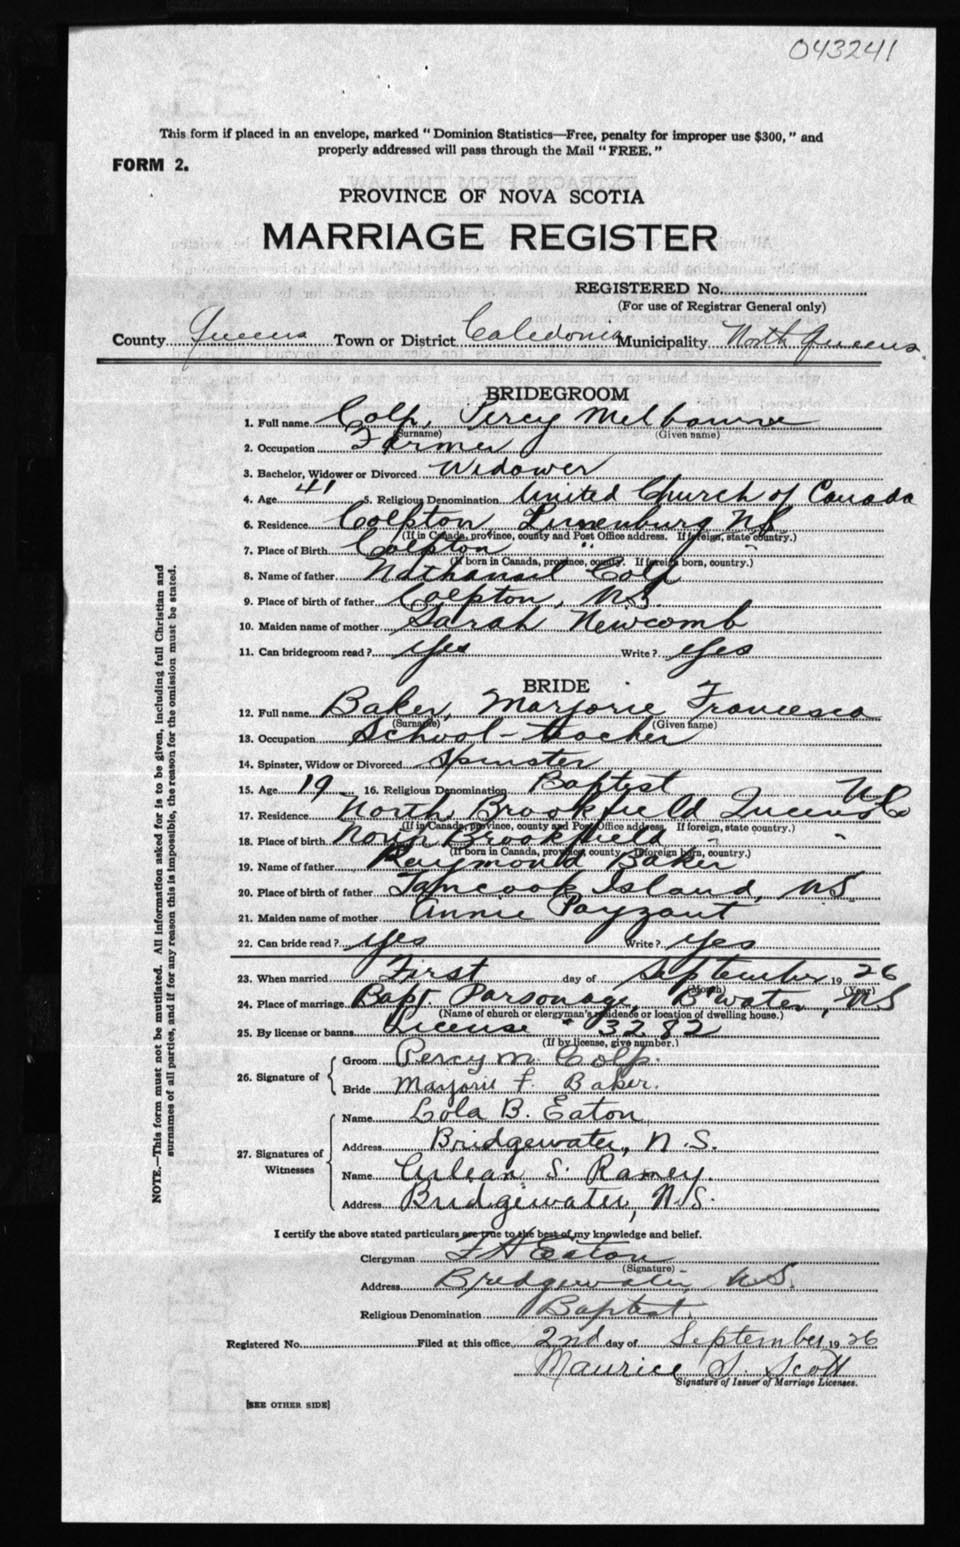 043241
This form if placed in an envelope, marked "Dominion Statistics—Free, penalty for improper use $300," and
properly addressed will pass through the Mail "FREE."
FORM 2.
PROVINCE OF NOVA SCOTIA
MARRIAGE REGISTER
REGISTERED No.
(For use of Registrar General only)
County Queens Town or District Caledonia Municipality North Queens
BRIDEGROOM
1. Full name Colp, Percy Melbourne
(Surname) (Given name)
2. Occupation Farmer
3. Bachelor, Widower or Divorced Widower
4. Age 41 5. Religious Denomination United Church of Canada
6. Residence Colpton, Lunenburg NS
(If in Canada, province, county and Post Office address. If foreign, state country.)
7. Place of Birth Colpton " "
(If born in Canada, province, county. If foreign born, country.)
8. Name of father Nathaniel Colp
9. Place of birth of father Colpton, N.S.
10. Maiden name of mother Sarah Newcomb
11. Can bridegroom read? Yes Write? Yes
BRIDE
12. Full name Baker, Marjorie Francesca
(Surname) (Given name)
13. Occupation School-teacher
14. Spinster, Widow or Divorced Spinster
15. Age 19 16. Religious Denomination Baptist
17. Residence North Brookfield Queens Co
(If in Canada, province, county and Post Office address. If foreign, state country.)
18. Place of birth North Brookfield " "
(If born in Canada, province, county. If foreign born, country.)
19. Name of father Raymond Baker
20. Place of birth of father Tancook Island, N.S.
21. Maiden name of mother Annie Payzant
22. Can bride read? Yes Write? Yes
23. When married First day of September 1926
(Month) (Year)
24. Place of marriage Bapt Parsonage, B'water, N.S
(Name of church or clergyman's residence or location of dwelling house.)
25. By license or banns License # 3282
(If by license, give number.)
26. Signature of
Groom Percy M. Colp.
Bride Marjorie F. Baker.
27. Signatures of Witnesses
Name Lola B. Eaton
Address Bridgewater, N.S.
Name S. Ramey.
Address Bridgewater, N.S.
I certify the above stated particulars are true to the best of my knowledge and belief.
Clergyman Eaton
(Signature)
Address Bridgewater, N.S.
Religious Denomination Baptist
Registered No. Filed at this office 2nd day of September 1926
Maurice S. Scott
Signature of Issuer of Marriage Licenses.
[SEE OTHER SIDE]
NOTE.—This form must not be mutilated. All information asked for is to be given, including full Christian and
surnames of all parties, and if for any reason this is impossible, the reason for the omission must be stated.